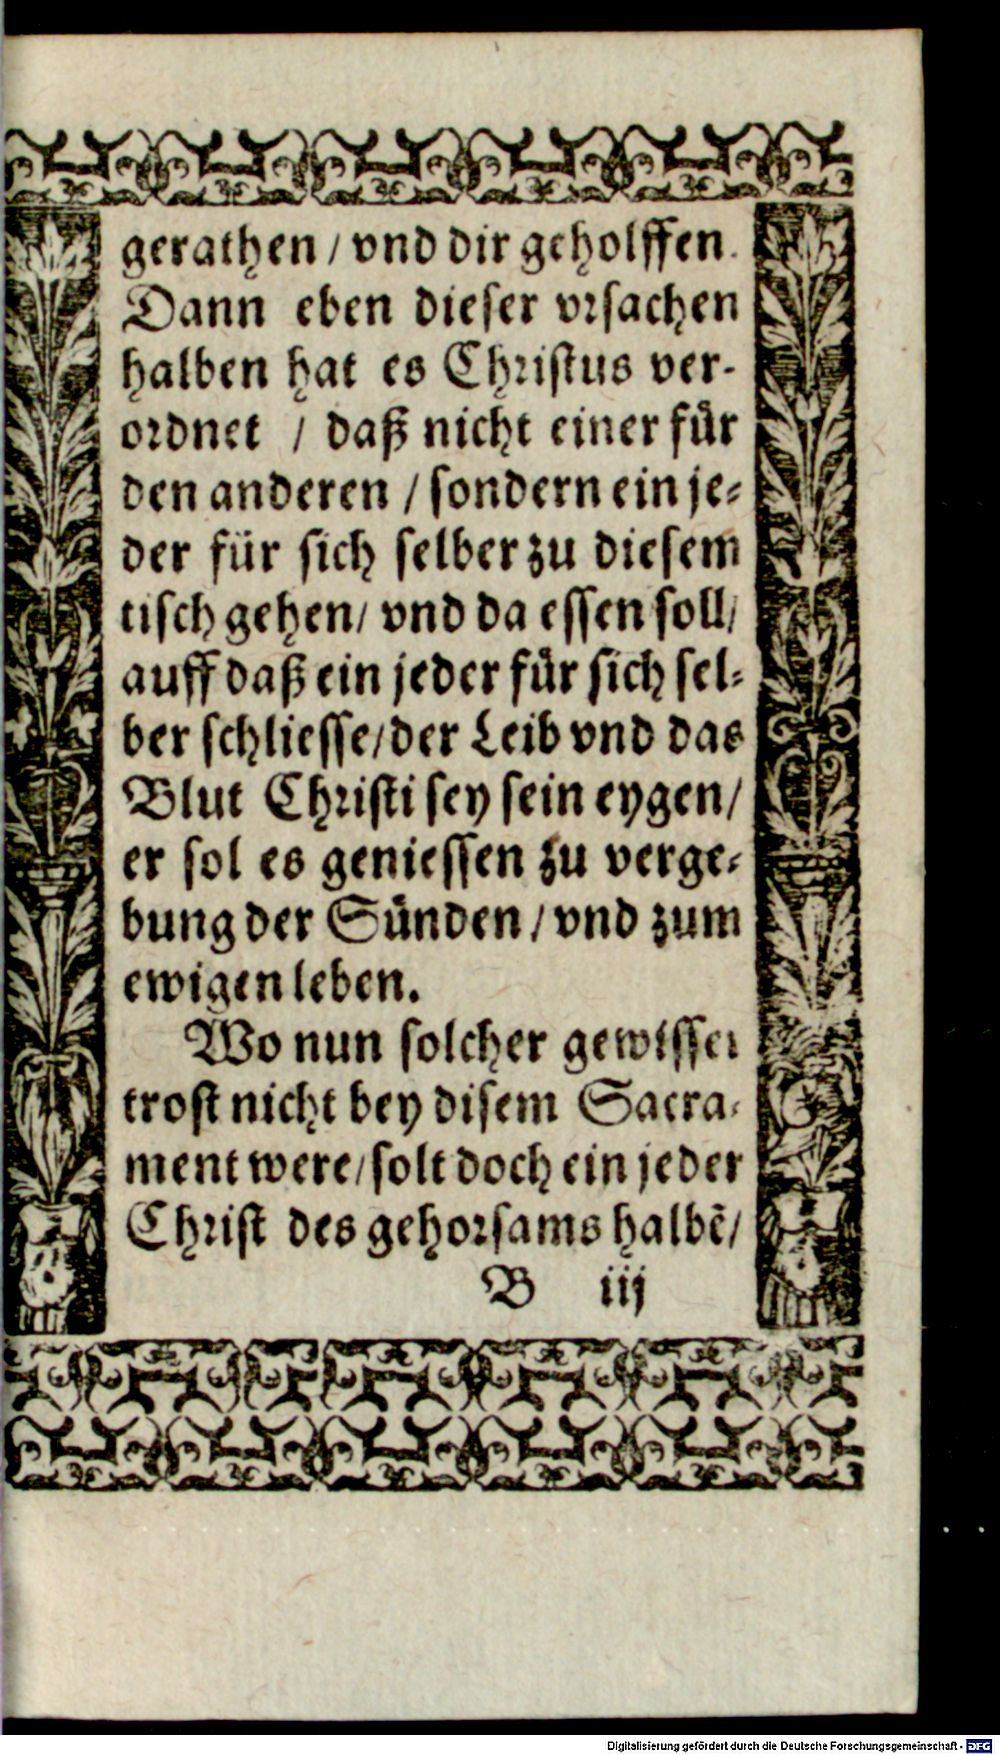 gerathen / vnd dir geholffen.
Dann eben dieser vrsachen
halben hat es Christus ver-
ordnet / daß nicht einer für
den anderen / sondern ein je-
der für sich selber zu diesem
tisch gehen / vnd da essen soll /
auff daß ein jeder für sich sel-
ber schliesse / der Leib vnd das
Blut Christi sey sein eygen /
er sol es geniessen zu verge-
bung der Sünden / vnd zum
ewigen leben.
Wo nun solcher gewisser
trost nicht bey disem Sacra-
ment were / solt doch ein jeder
Christ des gehorsams halbẽ /
B iij
Digitalisierung gefördert durch die Deutsche Forschungsgemeinschaft - DFG